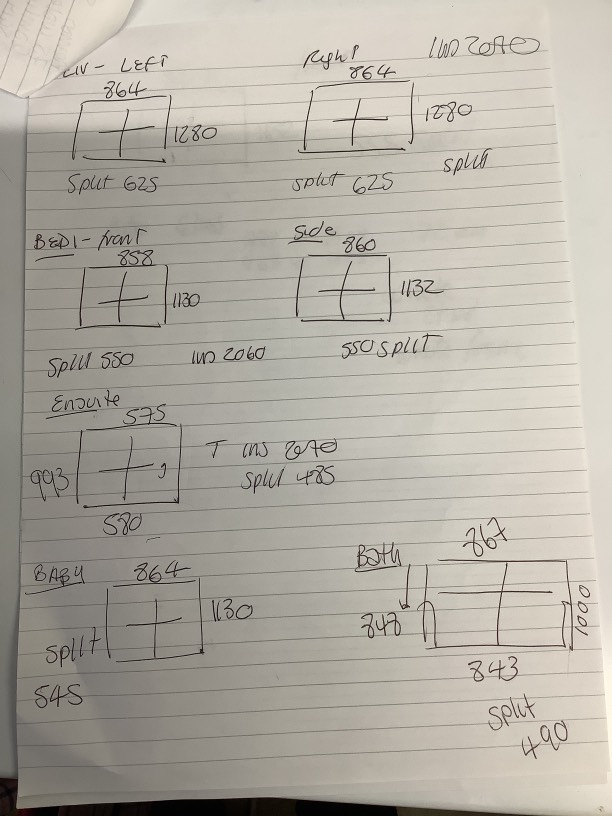 LIV - LEFT
864
1280
Split 625
Right
864
1280
split 625
split
BED1 - front
858
1130
Split 550
Side
860
1132
550 SPLIT
Ensuite
575
993
580
split 485
BABY
864
1130
Split
545
Bath
867
848
1000
843
split
490